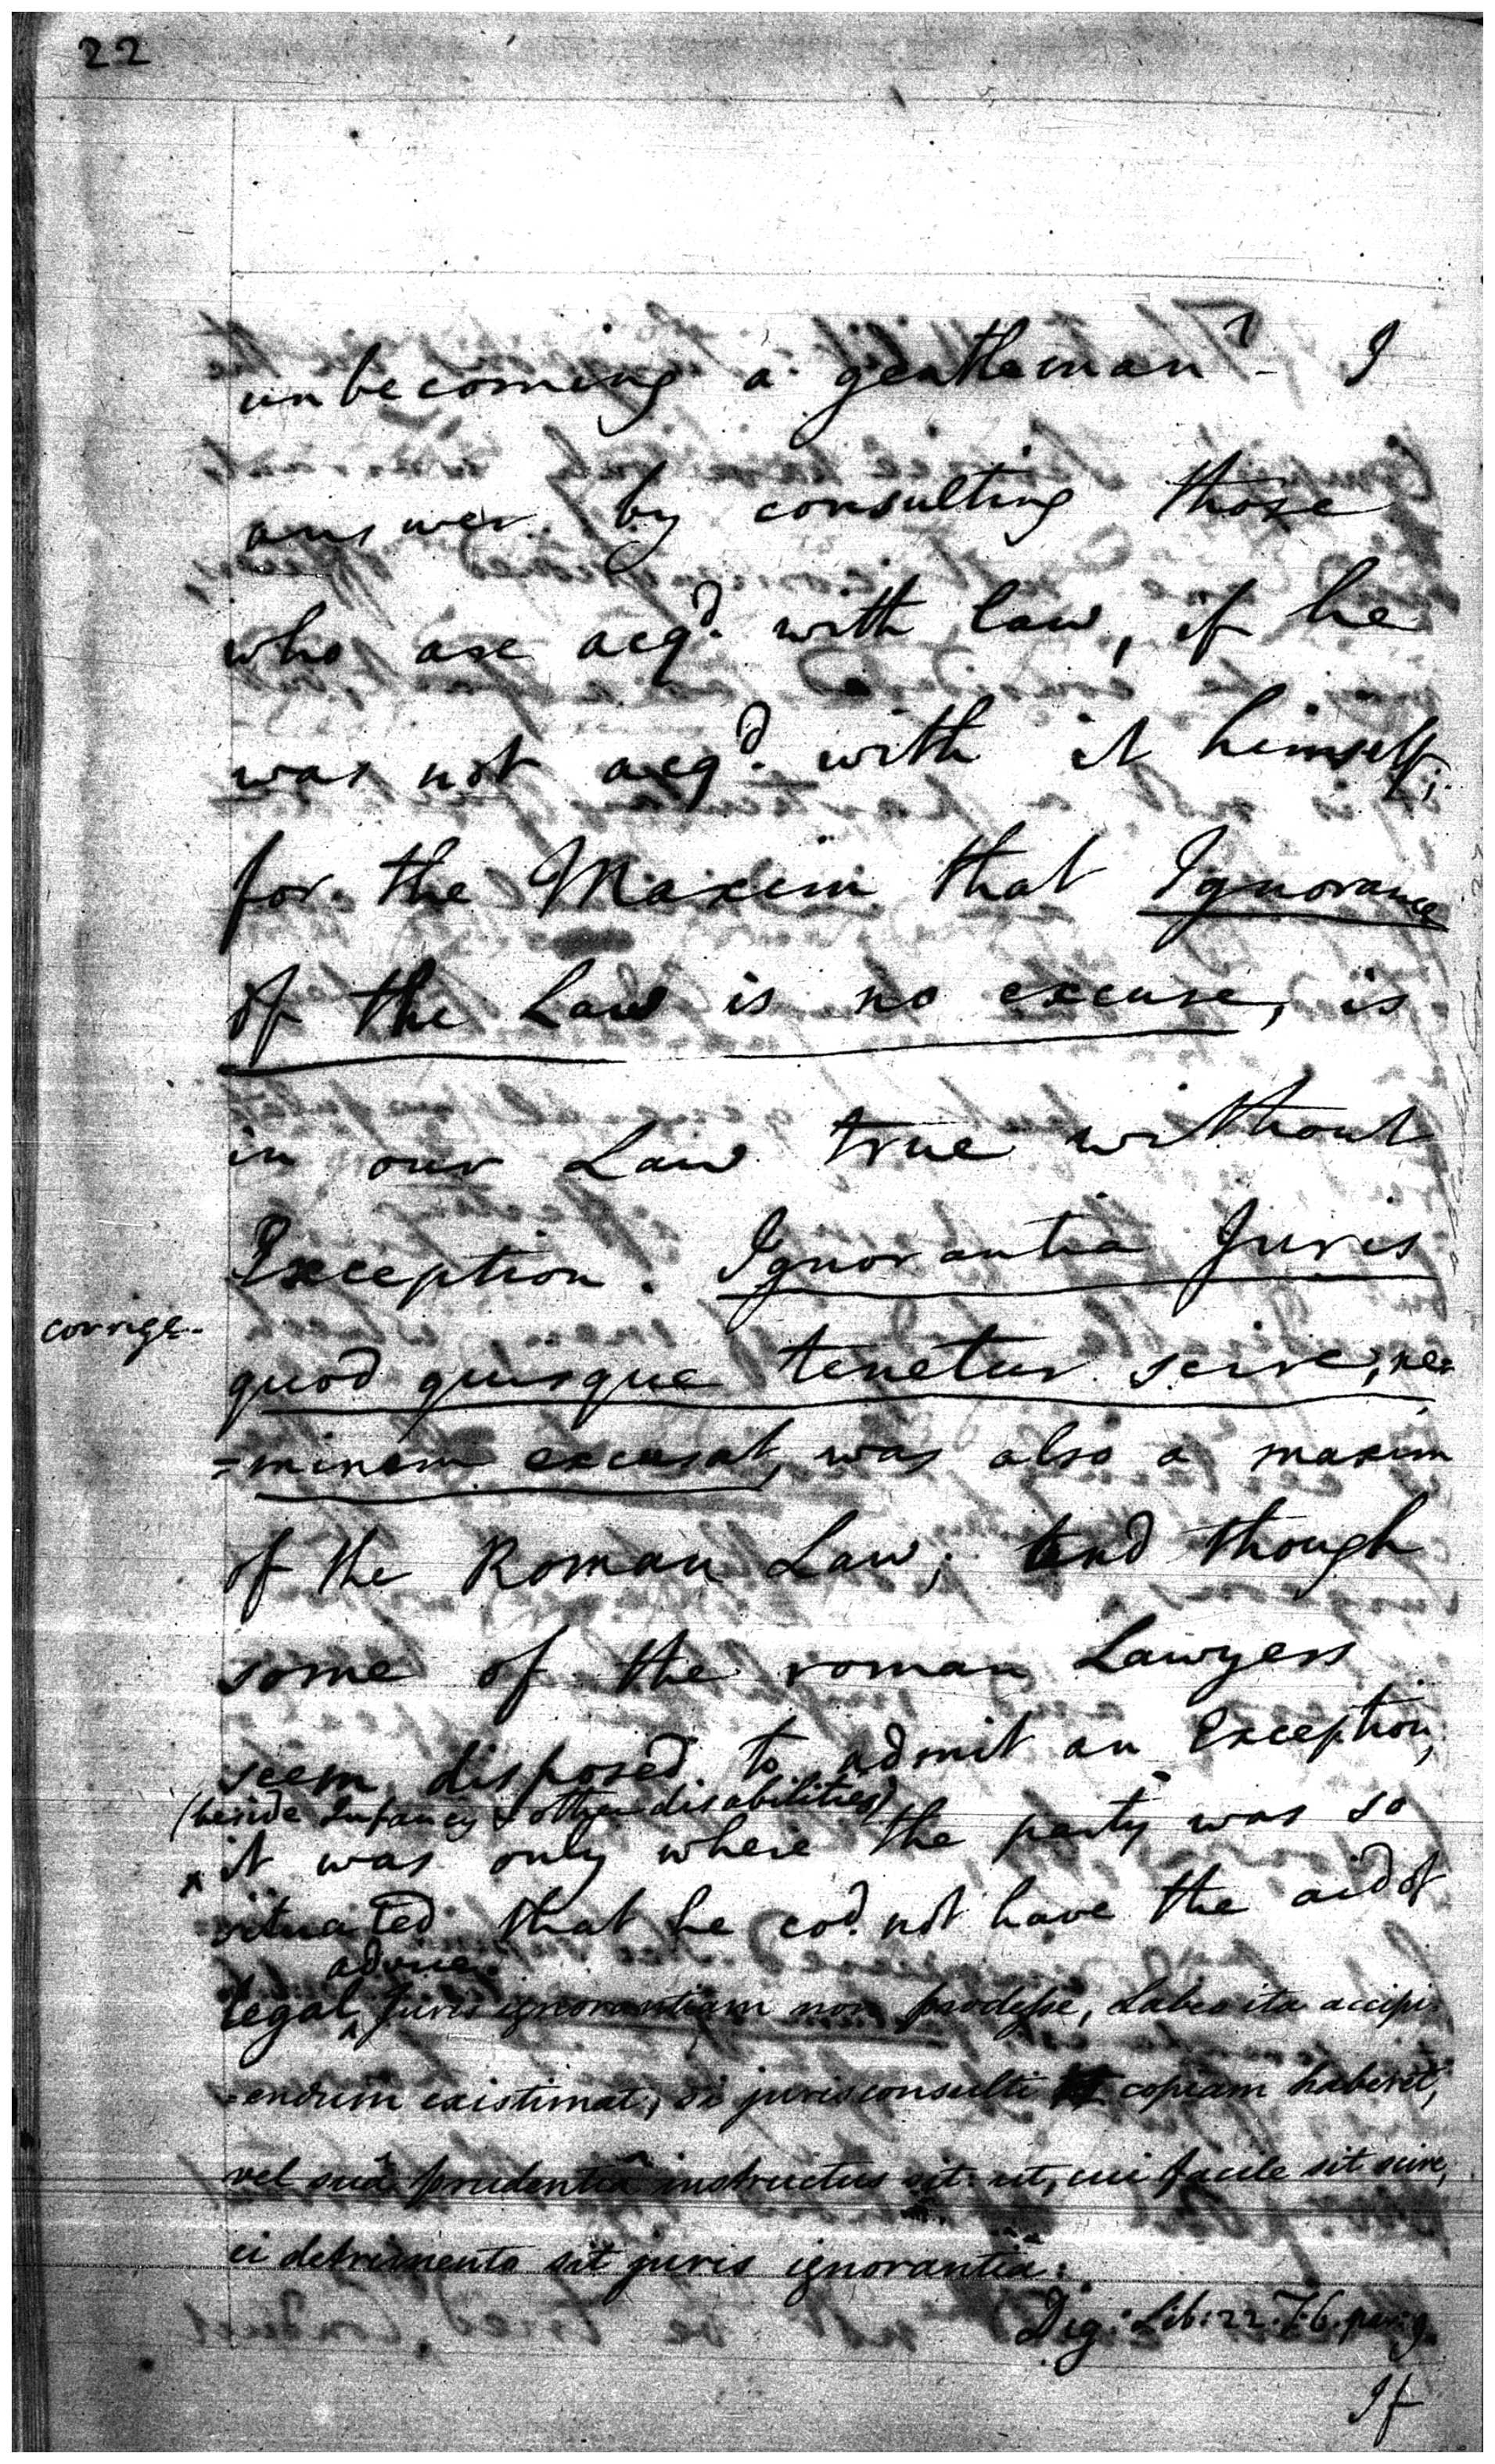 22
unbecoming a gentleman? - I
answer by consulting those
who are acqd. with law, if he
was not acqd. with it himself;
for the Maxim that Ignorance
of the Law is no excuse, is
in our Law true without
Exception. Ignorantia Juris
corrige.
quod quisque tenetur scire, ne=
=minem excusat, was also a maxim
of the Roman Law; and though
some of the roman Lawyers
seem disposed to admit an Exception,
(beside Infancy & other disabilities)
x it was only where the party was so
situated that he cod. not have the aid of
advice.
legal ^ Juris ignorantiam non prodesse, Labeo ita accipi=
=endum existimat, si jurisconsulti copiam haberet,
vel suâ prudentiâ instructus sit: ut, cui facile sit scire,
ei detrimento sit juris ignorantia:
Dig: Lib: 22. T. 6. par: 9.
If